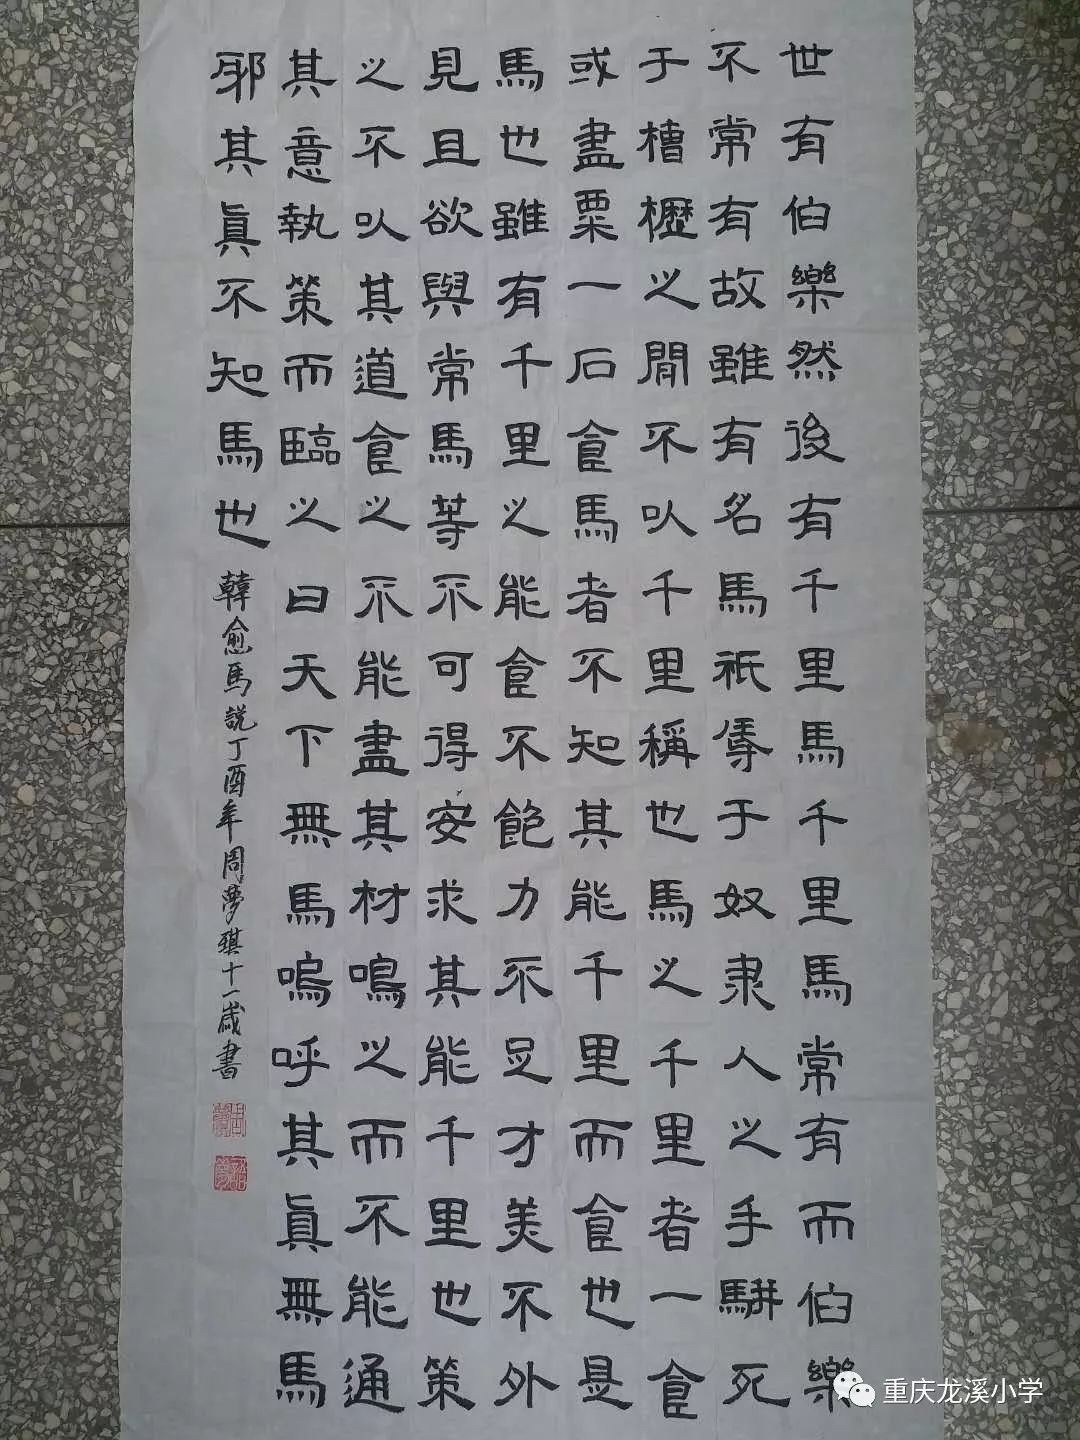 世有伯樂然後有千里馬千里馬常有而伯樂
不常有故雖有名馬祇辱于奴隶人之手駢死
于槽櫪之間不以千里稱也馬之千里者一食
或盡粟一石食馬者不知其能千里而食也是
馬也雖有千里之能食不飽力不足才美不外
見且欲與常馬等不可得安求其能千里也策
之不以其道食之不能盡其材鳴之而不能通
其意執策而臨之曰天下無馬嗚呼其眞無馬
邪其眞不知馬也
韓愈馬説丁酉年周夢琪十一歲書
重庆龙溪小学